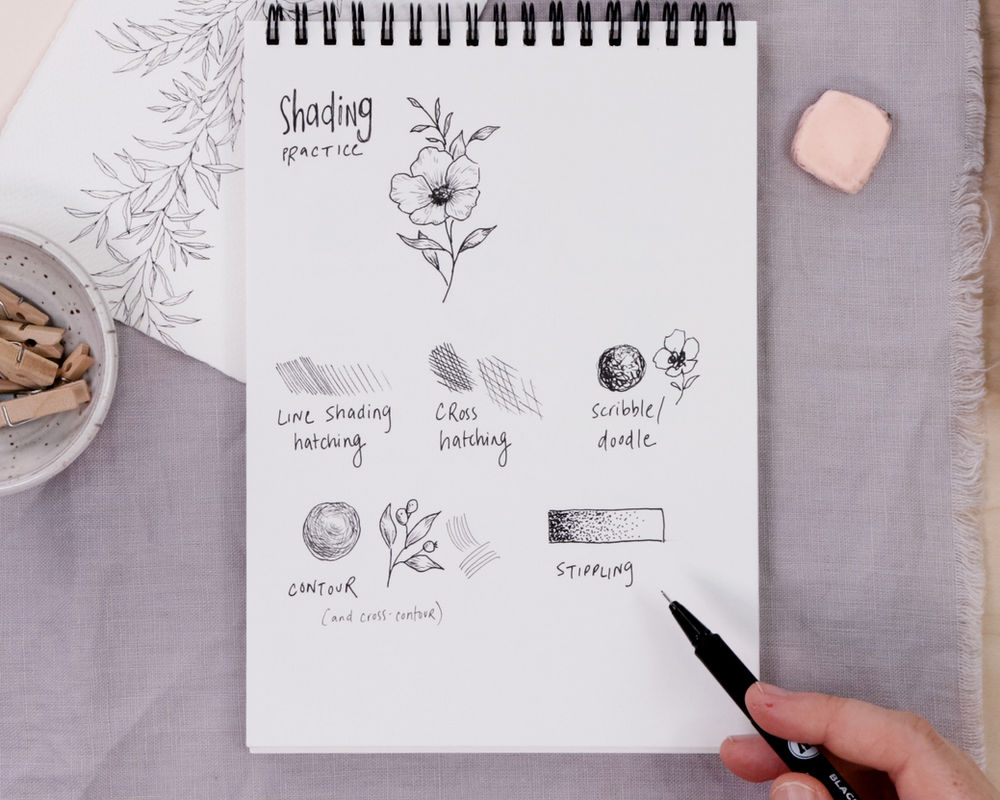 Shading
PRACTICE
LINE Shading
hatching
CROSS
hatching
scribble/
doodle
CONTOUR
(and cross-contour)
STIPPLING
BLAC